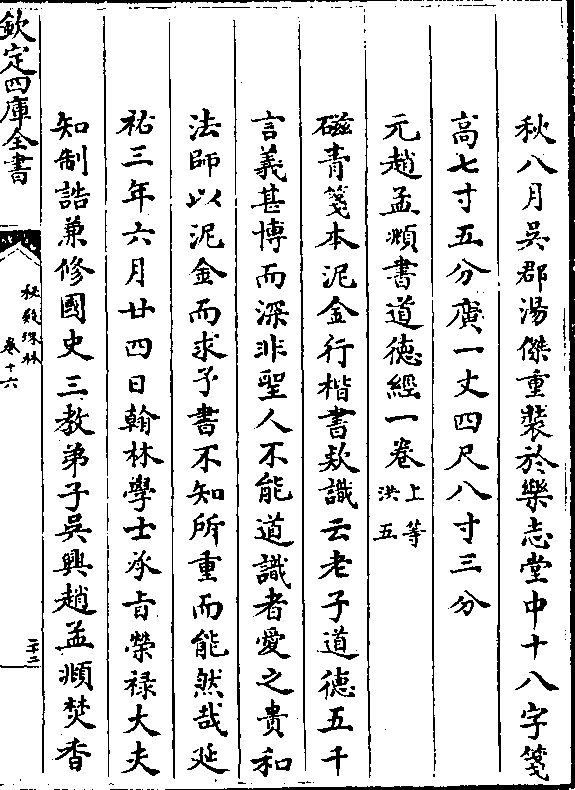 秋八月吳郡湯傑重裝於樂志堂中十八字箋
高七寸五分廣一丈四尺八寸三分
元趙孟頫書道德經一卷上等洪五
磁青箋本泥金行楷書欵識云老子道德五千
言義甚博而深非聖人不能道識者愛之貴和
法師以泥金而求予書不知所重而能然哉延
祐三年六月廿四日翰林學士承旨榮禄大夫
知制誥兼修國史三教弟子吳興趙孟頫焚香
欽定四庫全書
秘殿珠林
卷十六
二十二